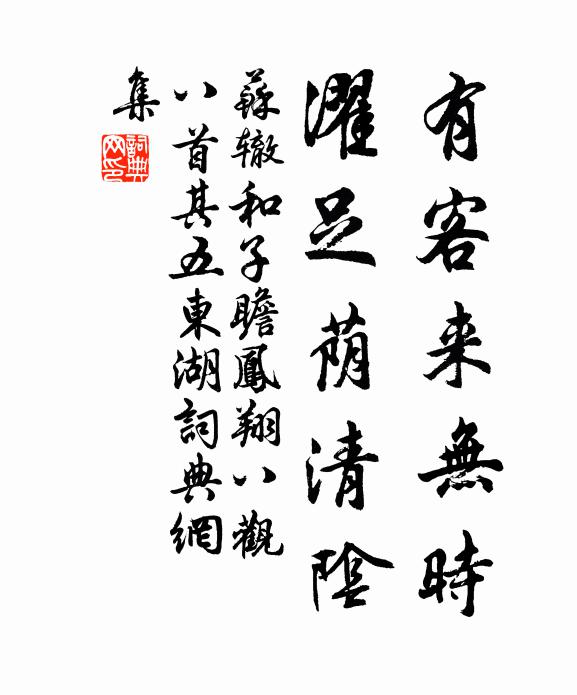 有客来無時
濯足荫清陰
蘇辙和子瞻鳳翔八觀
八首其五東湖詞典網
集
詞典
网印